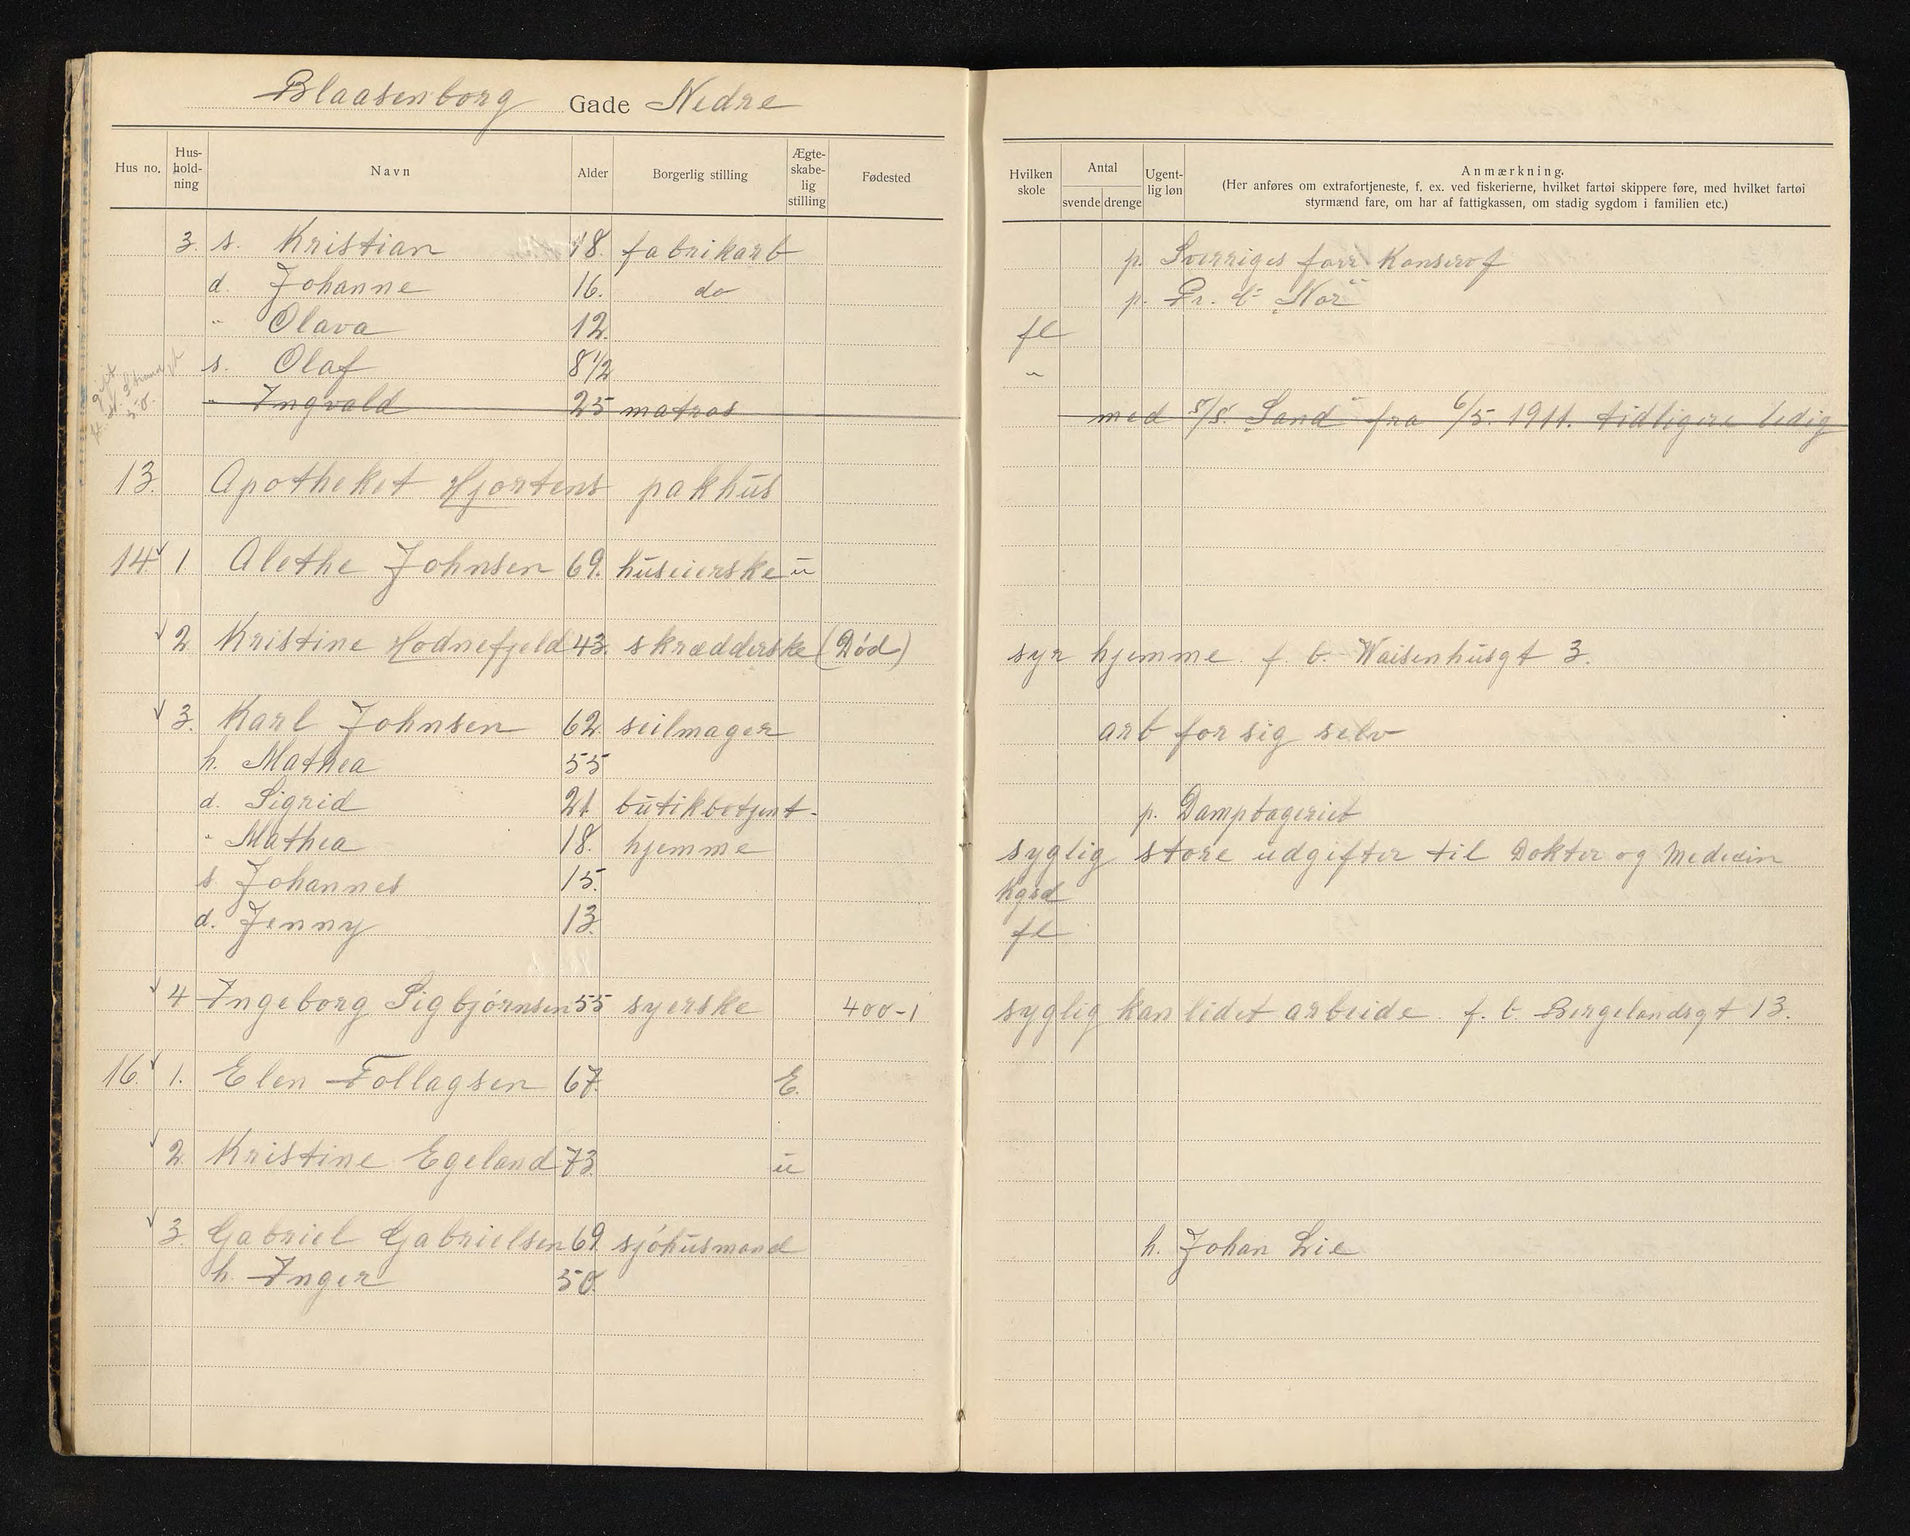 Blaasenborg Gade Nedre
Hus no. Hus-hold-ning Navn Alder Borgerlig stilling Ægte-skabe-lig stilling Fødested
Hvilken skole Antal svende drenge Ugent-lig løn Anmærkning.
(Her anføres om extrafortjeneste, f. ex. ved fiskerierne, hvilket fartøi skippere føre, med hvilket fartøi
styrmænd fare, om har af fattigkassen, om stadig sygdom i familien etc.)
3. s. Kristian 18. fabrikarb p. Sverriges forr Konserof
d. Johanne 16. do p. Pr. C= "Nor"
" Olava 12. fl
s. Olaf 8 1/2 "
gift
st. Strandgt
50.
" Ingvald 25 matros med S/S. "Sand" fra 6/5. 1911. tidligere ledig
13. Apotheket Hjortens pakhus
14 1 Alethe Johnsen 69. huseierske u
2 Kristine Hodnefjeld 43. skrædderske (Død) syr hjemme f b. Waisenhusgt 3.
3. Karl Johnsen 62 seilmager arb for sig selv
h. Mathea 55
d. Sigrid 21. butikbetjent. p. Dampbageriet
" Mathea 18. hjemme syglig store udgifter til Dokter og Medecin
s. Johannes 15. Kgsd
d. Jenny 13. fl
4 Ingeborg Sigbjørnsen 55 syerske 400-1 syglig kan lidet arbeide f. b. Bergelandsgt 13.
16. 1. Elen Tollagsen 67. E.
2 Kristine Egeland 73. u
3. Gabriel Gabrielsen 69 sjøhusmand h. Johan Lie
h. Inger 50.